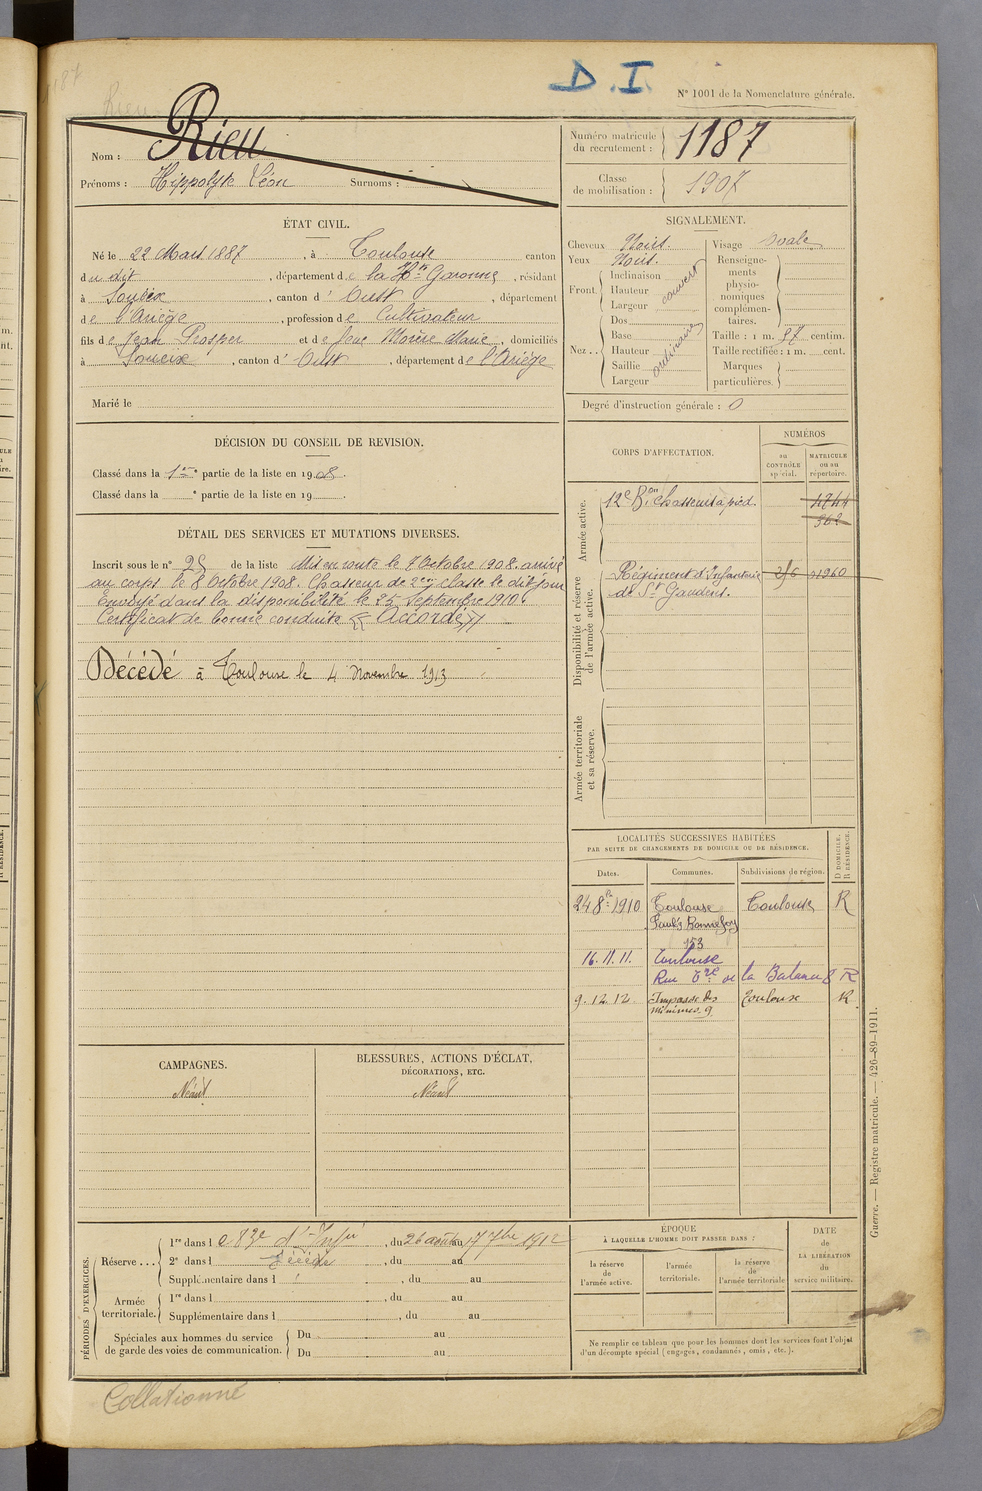 187
Rieu
D.I.
N° 1001 de la Nomenclature générale.
Nom : Rieu
Prénoms : Hippolyte Léon Surnoms :
Numéro matricule du recrutement : 1187
Classe de mobilisation : 1907
ÉTAT CIVIL.
Né le 22 Mars 1887, à Toulouse canton
du dit, département de la Hte Garonne, résidant
à Soueix, canton d'Oust, département
de l'Ariège, profession de Cultivateur
fils de Jean Prosper et de feue Marie, domiciliés
à Soueix, canton d'Oust, département de l'Ariège
Marié le
SIGNALEMENT.
Cheveux Noirs.
Yeux Noirs.
Front. Inclinaison
Hauteur couvert
Largeur
Nez.. Dos
Base
Hauteur ordinaire
Saillie
Largeur
Visage Ovale
Renseignements physionomiques complémentaires.
Taille : 1 m. 58 centim.
Taille rectifiée : 1 m. cent.
Marques particulières.
Degré d'instruction générale : 0
DÉCISION DU CONSEIL DE REVISION.
Classé dans la 1re partie de la liste en 1908.
Classé dans la e partie de la liste en 19
DÉTAIL DES SERVICES ET MUTATIONS DIVERSES.
Inscrit sous le n° 25 de la liste Mis en route le 7 Octobre 1908. arrivé
au corps le 8 Octobre 1908. Chasseur de 2e classe le dit jour
Envoyé dans la disponibilité le 25 Septembre 1910.
Certificat de bonne conduite « Accordé »
Décédé à Toulouse le 4 Novembre 1913
CORPS D'AFFECTATION.
NUMÉROS
au CONTRÔLE spécial.
MATRICULE ou au répertoire.
Armée active.
12e Bon Chasseurs à pied. 4744
362
Disponibilité et réserve de l'armée active.
Régiment d'Infanterie 01960
de St Gaudens.
Armée territoriale et sa réserve.
LOCALITÉS SUCCESSIVES HABITÉES
PAR SUITE DE CHANGEMENTS DE DOMICILE OU DE RÉSIDENCE.
Dates. Communes. Subdivisions de région. D DOMICILE. R RÉSIDENCE.
24 8re 1910 Toulouse Toulouse R
Faubg Bonnefoy
153
16.11.11. Toulouse
Rue de la Balance 8 R
9.12.12 Impasse des Toulouse R.
Minimes 9
CAMPAGNES.
Néant
BLESSURES, ACTIONS D'ÉCLAT,
DÉCORATIONS, ETC.
Néant
PÉRIODES D'EXERCICES.
Réserve... 1re dans le 83e d'Infie, du 26 août au 17 7bre 1912
2e dans l Décédé, du au
Supplémentaire dans l, du au
Armée territoriale. 1re dans l, du au
Supplémentaire dans l, du au
Spéciales aux hommes du service de garde des voies de communication. Du au
Du au
ÉPOQUE
À LAQUELLE L'HOMME DOIT PASSER DANS :
la réserve de l'armée active.
l'armée territoriale.
la réserve de l'armée territoriale
DATE de LA LIBÉRATION du service militaire.
Ne remplir ce tableau que pour les hommes dont les services font l'objet
d'un décompte spécial (engagés, condamnés, omis, etc.).
Guerre. — Registre matricule. — 426-89-1911.
Collationné